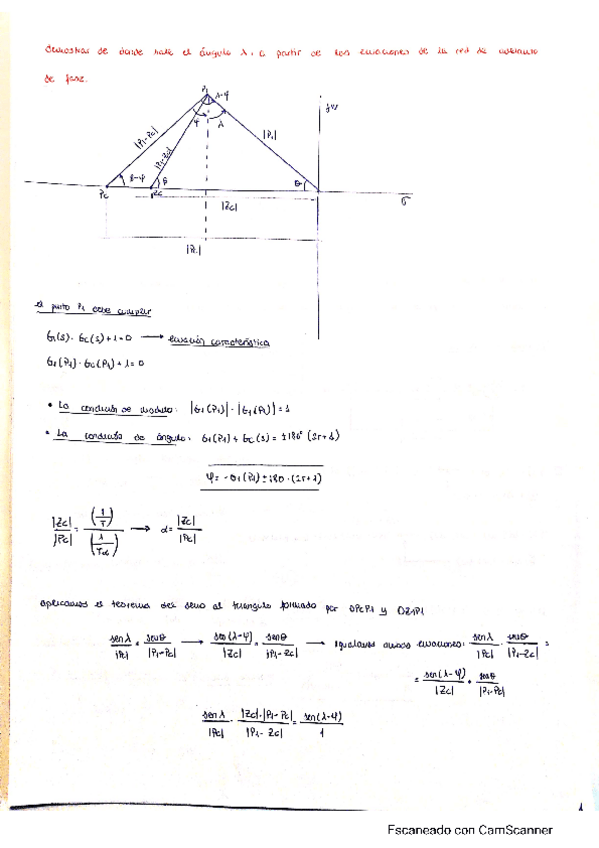 demostrar de donde sale el ángulo λ, a partir de las ecuaciones de la red de
de fase.
P1
λ-φ
jw
φ
λ
|P1-Pc|
|P1-Zc|
|P1|
θ
θ
Pc
σ
|Zc|
|Pc|
el punto P1 debe cumplir
G(s) · Gc(s) + 1 = 0 ⟶ ecuación característica
G1(P1) · Gc(P1) + 1 = 0
• La condición de modulo:
• La condición de ángulo: G1(P1) + Gc(s) = ±180° (2r+1)
φ = -G1(P1) ± 180 · (2r+1)
|Zc| / |Pc| = ⟶ α = |Zc| / |Pc|
aplicamos el teorema del seno al triangulo formado por OPcP1 y OZ1P1
sen λ / |Pc| = sen θ / |P1-Pc| ⟶ sen(λ-φ) / |Zc| = sen θ / |P1-Zc| ⟶ igualamos ambas ecuaciones: sen λ / |Pc| · sen θ / |P1-Zc| =
= sen(λ-φ) / |Zc| · sen θ / |P1-Pc|
sen λ / |Pc| · |Zc|·|P1-Pc| / |P1-Zc| = sen(λ-φ) / 1
1
Escaneado con CamScanner